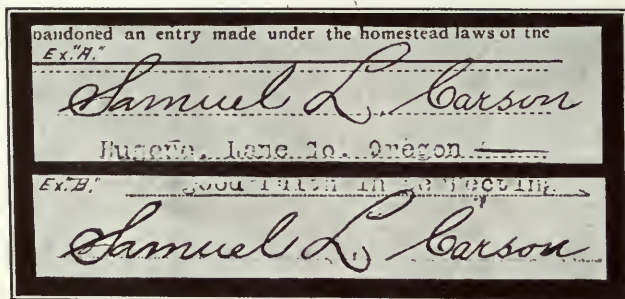 abandoned an entry made under the homestead laws of the
Ex. "A."
Samuel L. Carson
Eugene, Lane Co. Oregon
Ex. "B."
good faith in perfecting
Samuel L. Carson